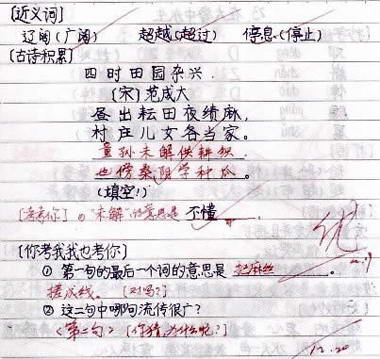 [近义词]
辽阔(广阔) 超越(超过) 停息(停止)
[古诗积累]
四时田园杂兴
[宋]范成大
昼出耘田夜绩麻,
村庄儿女各当家。
童孙未解供耕织
也傍桑阴学种瓜。
(填空!)
[考考你]①"未解"的意思是 不懂 。
[你考我我也考你]
① 第一句的最后一个词的意思是 把麻丝 。
搓成线。 [对吗?]
② 这二句中哪句流传很广?
<第二句> [你猜,为什么呢?]
优
12.20